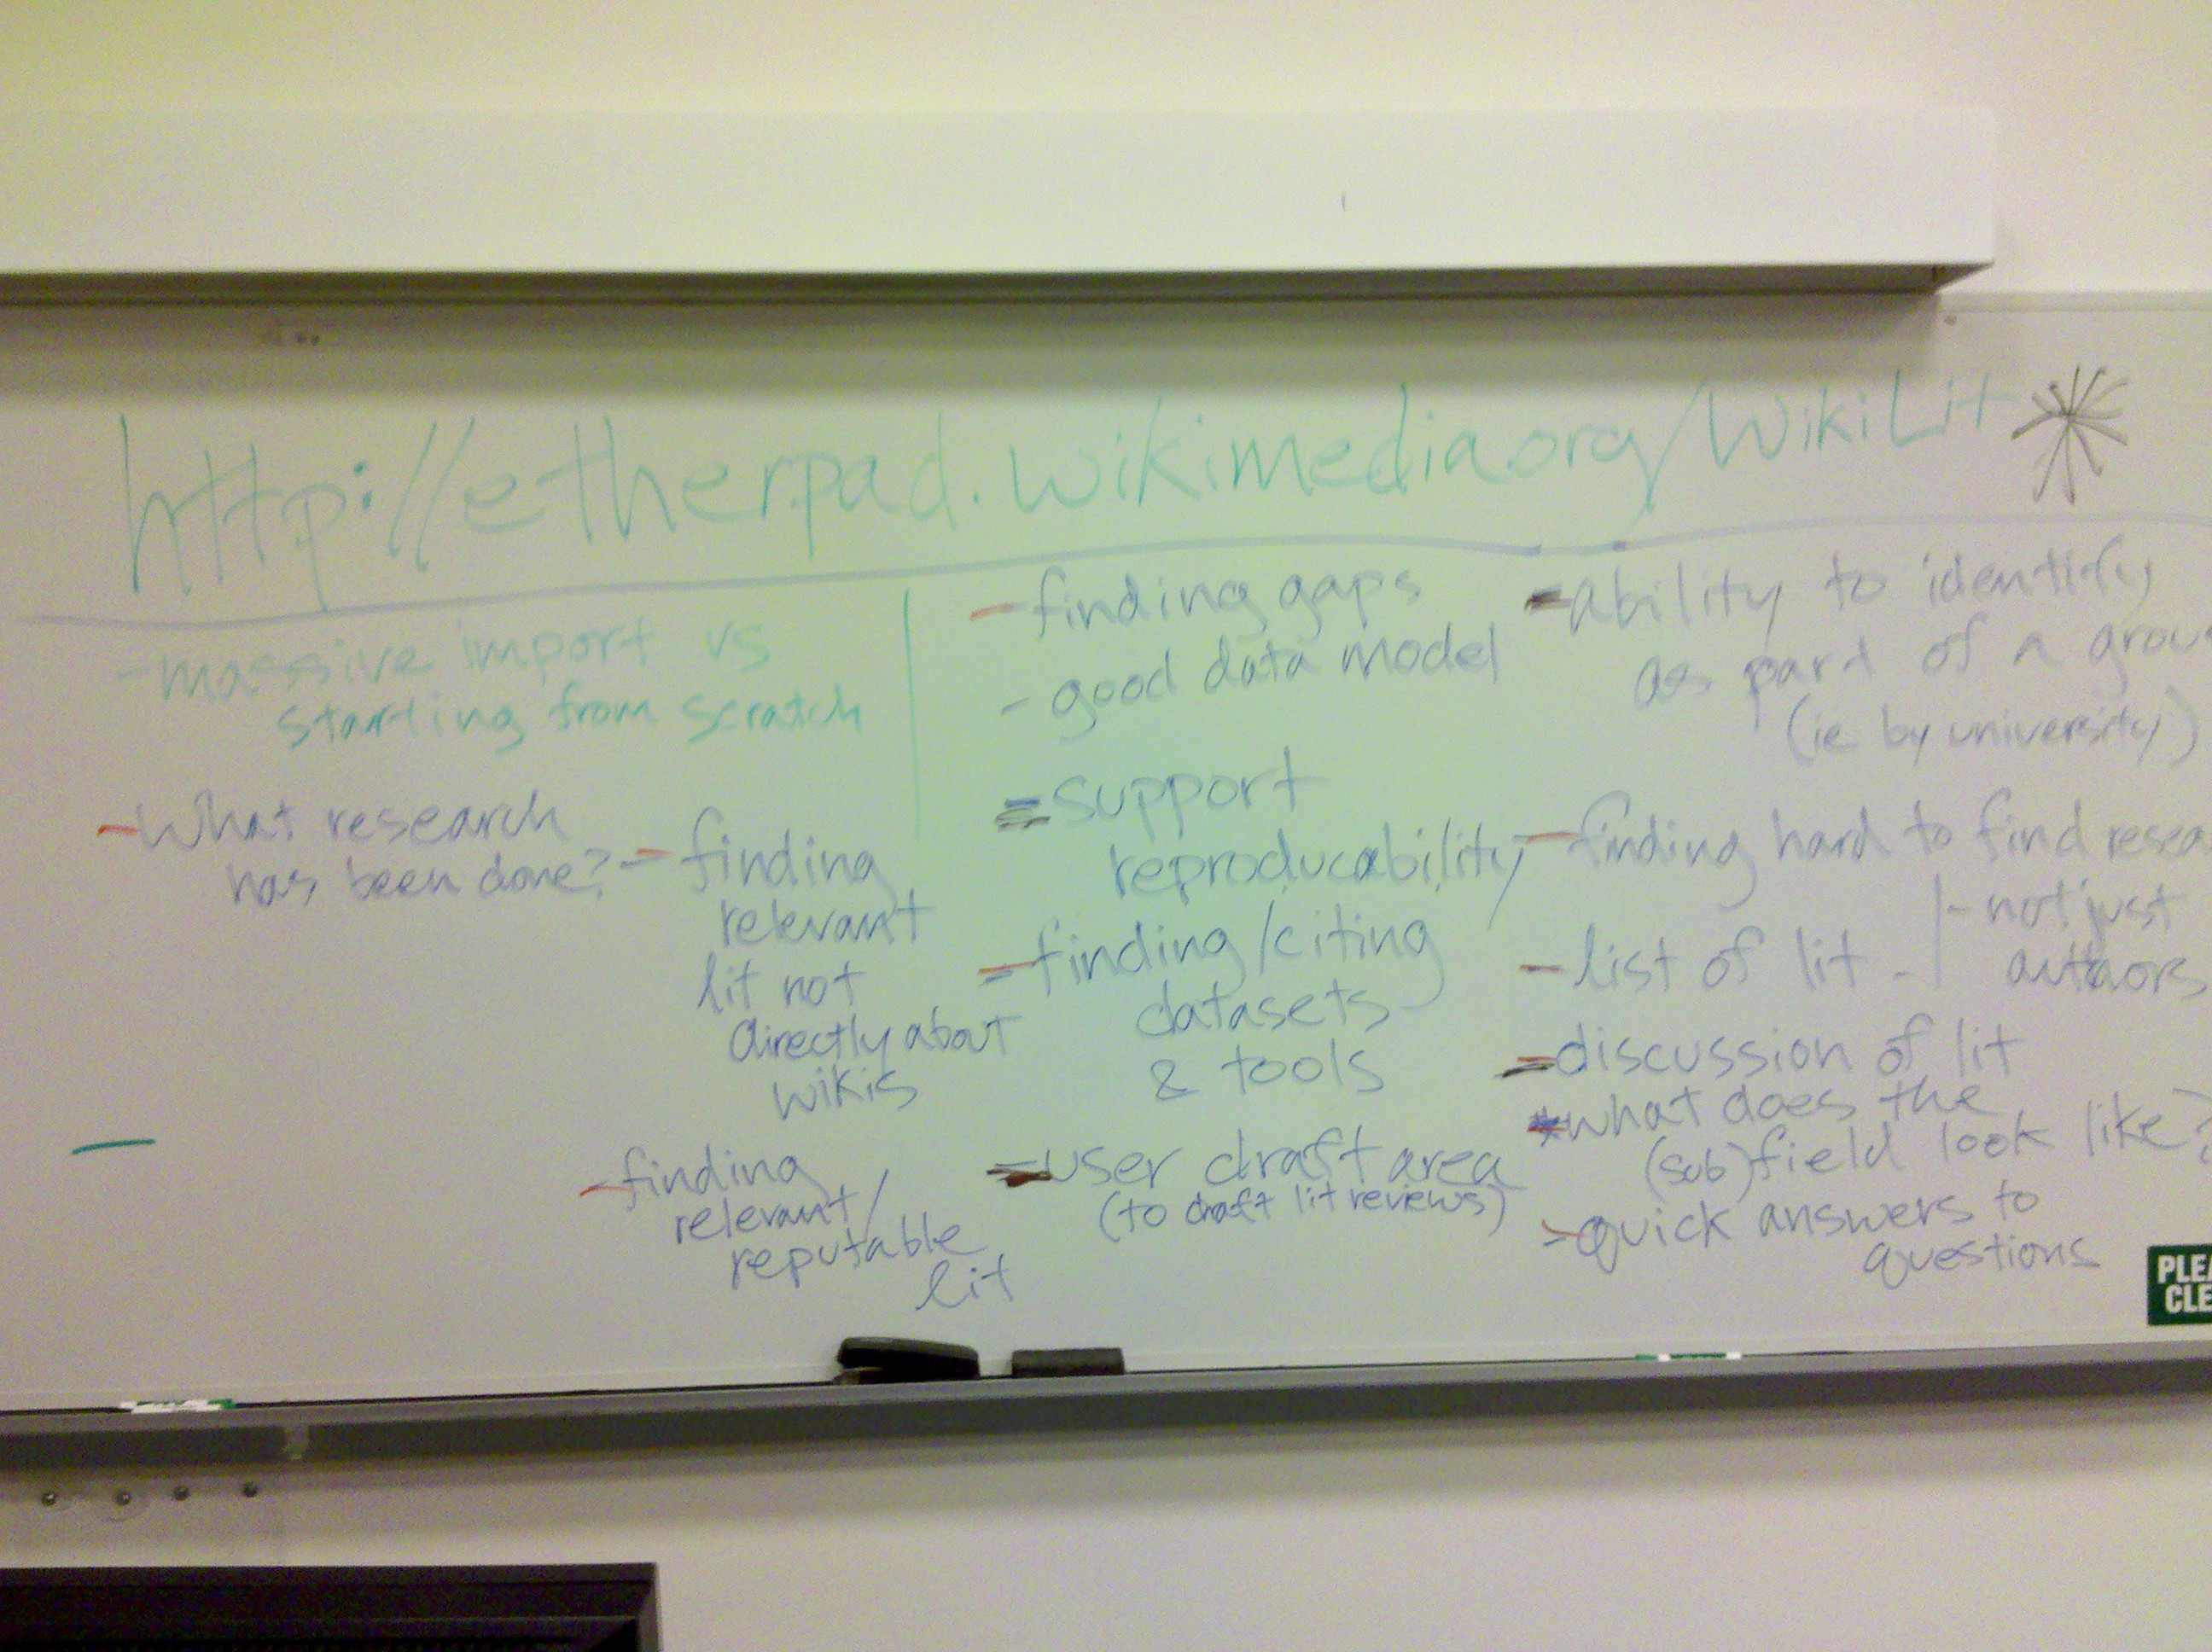 http://etherpad.wikimedia.org/WikiLit
- massive import vs
starting from scratch
- What research
has been done?
- finding
relevant
lit not
directly about
wikis
- finding
relevant/
reputable
lit
- finding gaps
- good data model
- support
reproducability
- finding/citing
datasets
& tools
- user draft area
(to draft lit reviews)
- ability to identify
as part of a grou
(ie by university)
- finding hard to find resea
- list of lit -
- not just
authors
- discussion of lit
* what does the
(sub)field look like?
- quick answers to
questions
PLEA
CLE